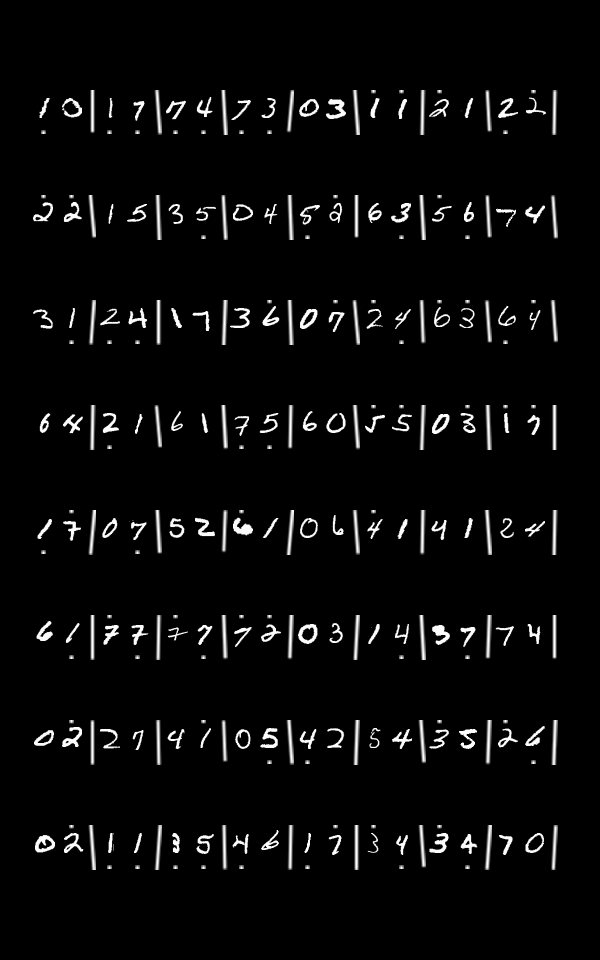 1 0 | 1 7 | 7 4 | 7 3 | 0 3 | 1 1 | 2 1 | 2 2 |
2 2 | 1 5 | 3 5 | 0 4 | 5 2 | 6 3 | 5 6 | 7 4 |
3 1 | 2 4 | 1 7 | 3 6 | 0 7 | 2 4 | 6 3 | 6 4 |
6 4 | 2 1 | 6 1 | 7 5 | 6 0 | 5 5 | 0 3 | 1 7 |
1 7 | 0 7 | 5 2 | 6 1 | 0 6 | 4 1 | 4 1 | 2 4 |
6 1 | 7 7 | 7 7 | 7 2 | 0 3 | 1 4 | 3 7 | 7 4
0 2 | 2 7 | 4 1 | 0 5 | 4 2 | 5 4 | 3 5 | 2 6 |
0 2 | 1 1 | 3 5 | 4 6 | 1 7 | 3 4 | 3 4 | 7 0 |